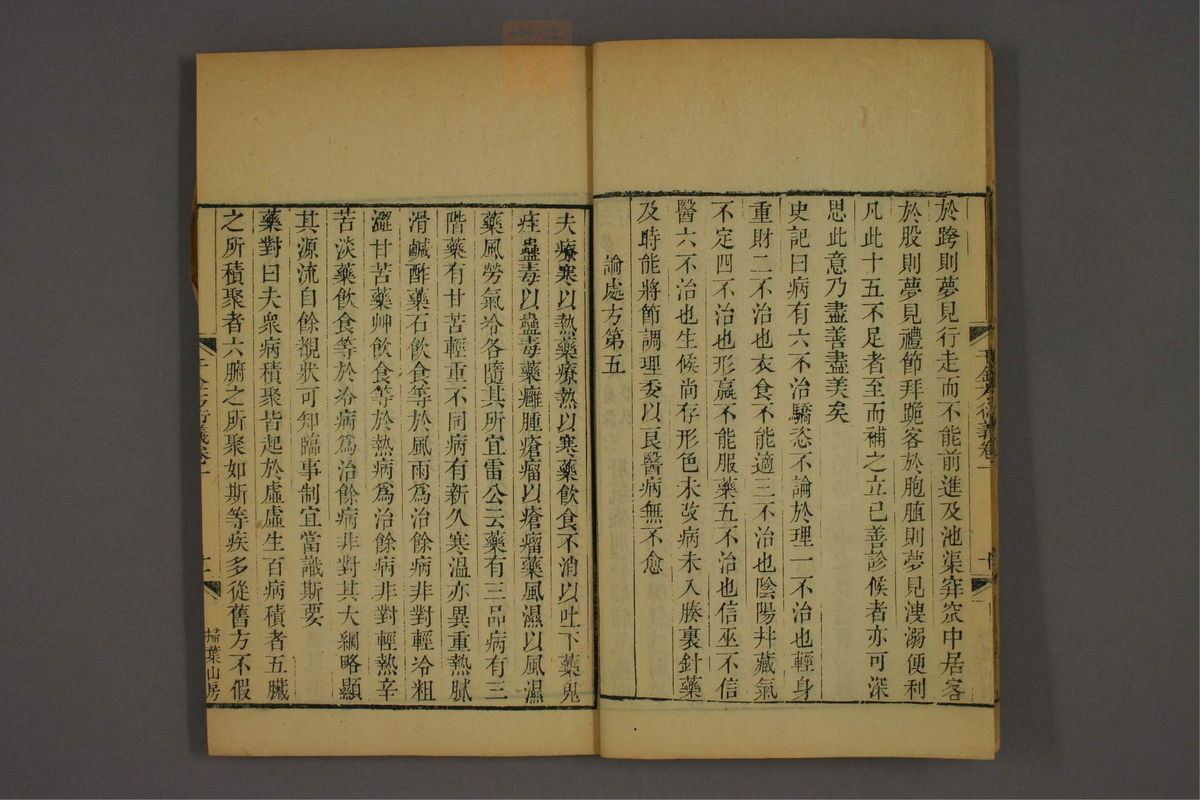 於跨則夢見行走而不能前進及池渠穽窌中居客
於股則夢見禮節拜跪客於胞䐈則夢見溲溺便利
凡此十五不足者至而補之立已善診候者亦可深
思此意乃盡善盡美矣
史記曰病有六不治驕恣不論於理一不治也輕身
重財二不治也衣食不能適三不治也陰陽幷藏氣
不定四不治也形羸不能服藥五不治也信巫不信
醫六不治也生候尚存形色未改病未入腠裏針藥
及時能將節調理委以良醫病無不愈
論處方第五
夫療寒以熱藥療熱以寒藥飲食不消以吐下藥鬼
疰蠱毒以蠱毒藥癰腫瘡瘤以瘡瘤藥風濕以風濕
藥風勞氣冷各隨其所宜雷公云藥有三品病有三
階藥有甘苦輕重不同病有新久寒温亦異重熱膩
滑鹹酢藥石飲食等於風雨爲治餘病非對輕冷粗
澀甘苦藥艸飲食等於熱病爲治餘病非對輕熱辛
苦淡藥飲食等於冷病爲治餘病非對其大綱略顯
其源流自餘覩狀可知臨事制宜當識斯要
藥對曰夫衆病積聚皆起於虛虛生百病積者五臟
之所積聚者六腑之所聚如斯等疾多從舊方不假
千金方衍義卷一
掃葉山房